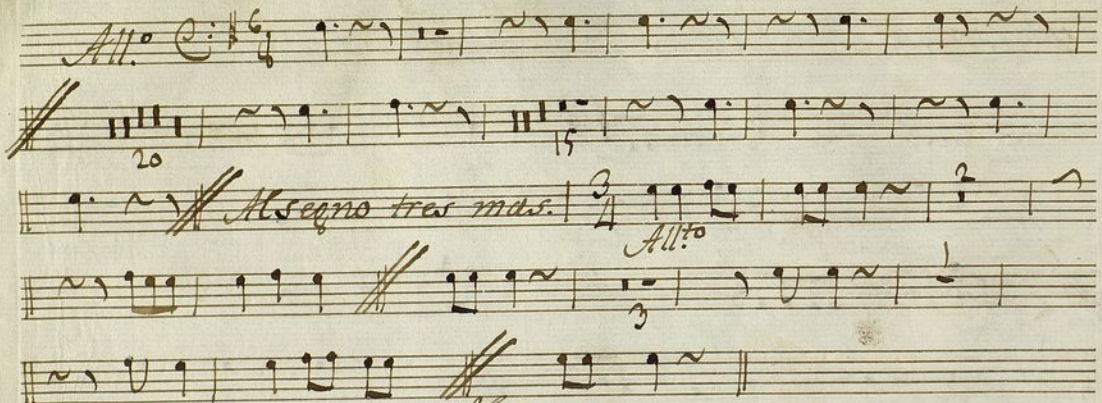 All.o 6 8
20 15
Al segno tres mas. 3 4 2
All.to
3 1